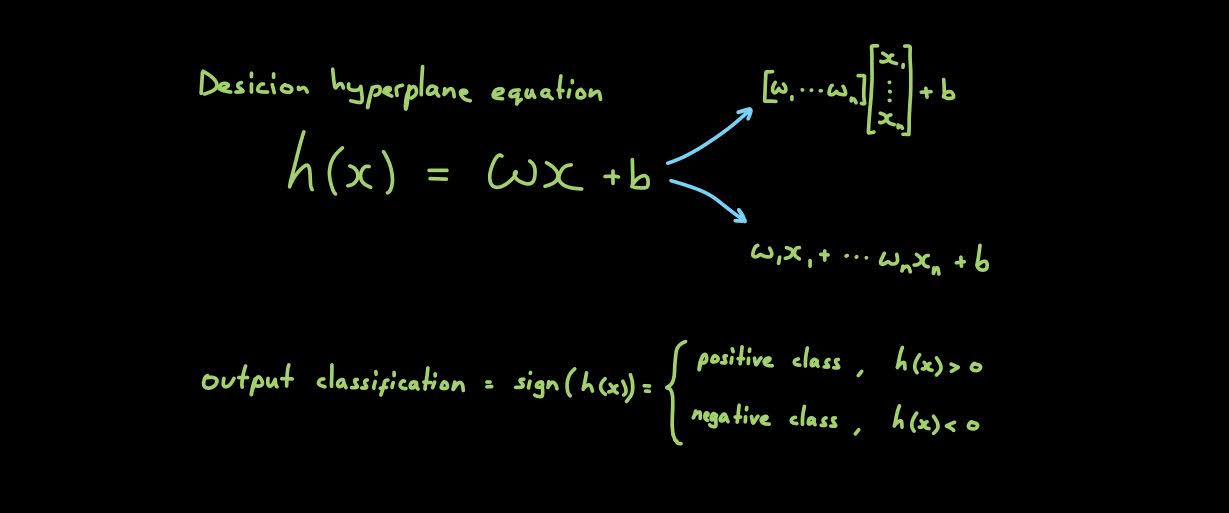 Desicion hyperplane equation
h(x) = ωx + b
[ω₁ ⋯ ωₙ] [x₁ ⋮ xₙ] + b
ω₁x₁ + ⋯ ωₙxₙ + b
output classification = sign(h(x)) = { positive class , h(x) > 0
negative class , h(x) < 0